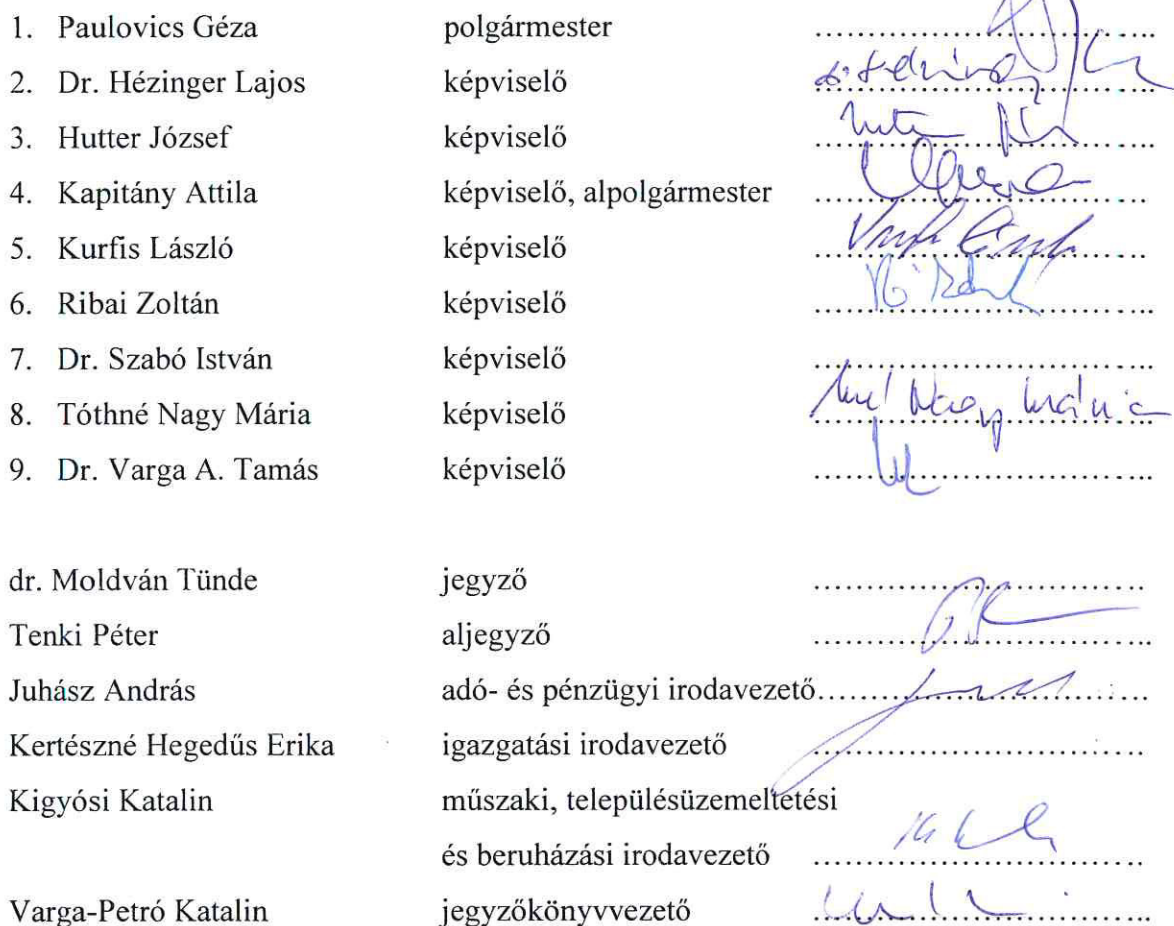 1. Paulovics Géza polgármester ..........
2. Dr. Hézinger Lajos képviselő ..........
3. Hutter József képviselő ..........
4. Kapitány Attila képviselő, alpolgármester ..........
5. Kurfis László képviselő ..........
6. Ribai Zoltán képviselő ..........
7. Dr. Szabó István képviselő ..........
8. Tóthné Nagy Mária képviselő Nagy Mária
9. Dr. Varga A. Tamás képviselő ..........
dr. Moldván Tünde jegyző ..........
Tenki Péter aljegyző ..........
Juhász András adó- és pénzügyi irodavezető ..........
Kertészné Hegedűs Erika igazgatási irodavezető ..........
Kigyósi Katalin műszaki, településüzemeltetési
és beruházási irodavezető ..........
Varga-Petró Katalin jegyzőkönyvvezető ..........